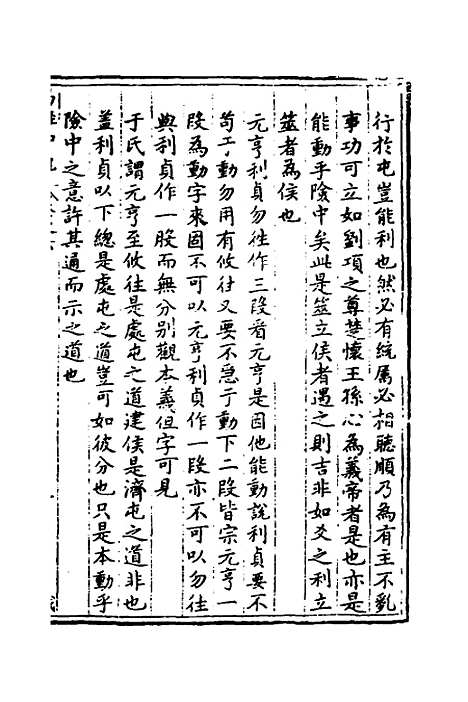 行於屯豈能利也然必有統屬必相聽順乃為有主不亂
事功可立如劉項之尊楚懷王孫心為義帝者是也亦是
能動乎險中矣此是筮立侯者遇之則吉非如爻之利立
筮者為侯也
元亨利貞勿徃作三段看元亨是因他能動說利貞要不
苟于動勿用有攸徃又要不急于動下二段皆宗元亨一
段為動字來固不可以元亨利貞作一段亦不可以勿徃
與利貞作一股而無分別觀本義但字可見
于氏謂元亨至攸往是處屯之道建侯是濟屯之道非也
蓋利貞以下總是處屯之道豈可如彼分也只是本動乎
險中之意許其通而示之道也